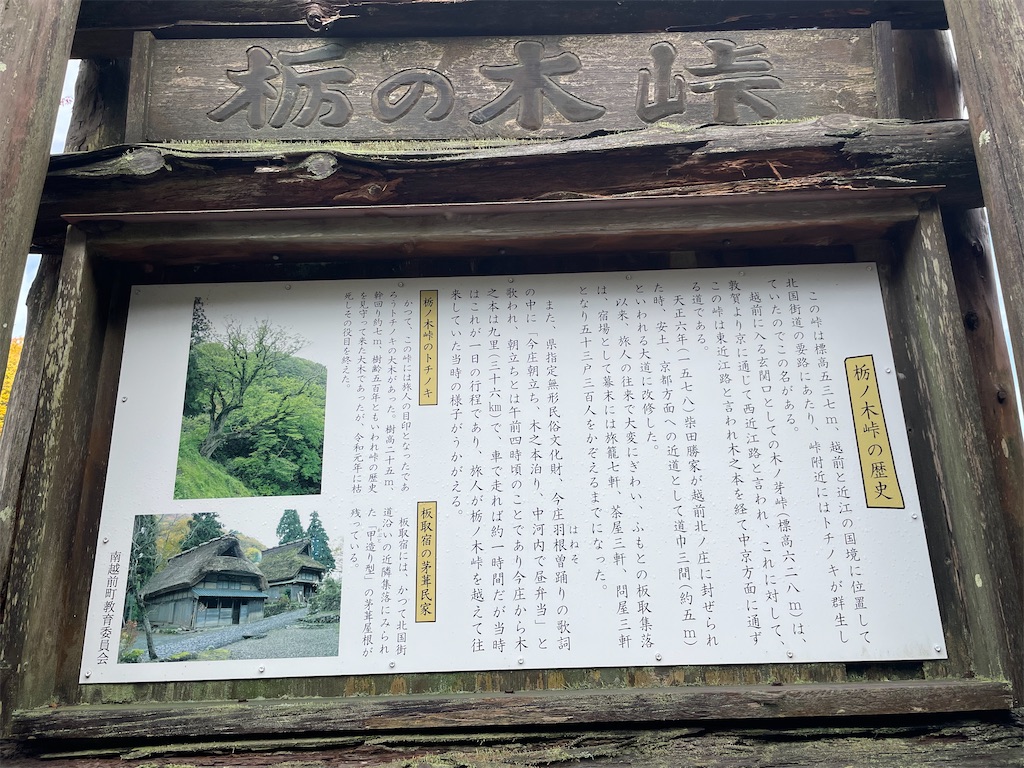 栃の木峠
栃ノ木峠の歴史
この峠は標高五三七m、越前と近江の国境に位置して
北国街道の要路にあたり、峠附近にはトチノキが群生し
ていたのでこの名がある。
越前に入る玄関口としての木ノ芽峠（標高六二八m）は、
敦賀より京に通じて西近江路と言われ、これに対して、
この峠は東近江路と言われ木之本を経て中京方面に通ず
る道である。
天正六年（一五七八）柴田勝家が越前北ノ庄に封ぜられ
た時、安土、京都方面への近道として道巾三間（約五m）
といわれる大道に改修した。
以来、旅人の往来で大変にぎわい、ふもとの板取集落
は、宿場として幕末には旅籠七軒、茶屋三軒、問屋三軒
となり五十三戸三百人をかぞえるまでになった。
はねそ
また、県指定無形民俗文化財、今庄羽根曽踊りの歌詞
の中に「今庄朝立ち、木之本泊り、中河内で昼弁当」と
歌われ、朝立ちとは午前四時頃のことであり今庄から木
之本は九里（三十六km）で、車で走れば約一時間だが当時
はこれが一日の行程であり、旅人が栃ノ木峠を越えて往
来していた当時の様子がうかがえる。
栃ノ木峠のトチノキ
かつて、この峠には旅人の目印となったであ
ろうトチノキの大木があった。樹高二十五m、
幹回り約七m、樹齢五百年ともいわれ峠の歴史
を見守って来た大木であったが、令和元年に枯
死しその役目を終えた。
板取宿の茅葺民家
板取宿には、かつて北国街
道沿いの近隣集落にみられ
た「甲造り型」の茅葺屋根が
残っている。
南越前町教育委員会